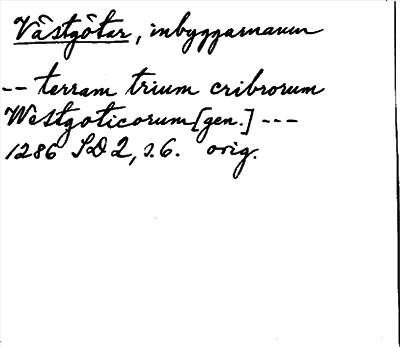 Västgötar, inbyggarnamn
-- terram trium cribrorum
Westgoticorum [gen.] ---
1286 SD 2, s. 6. orig.